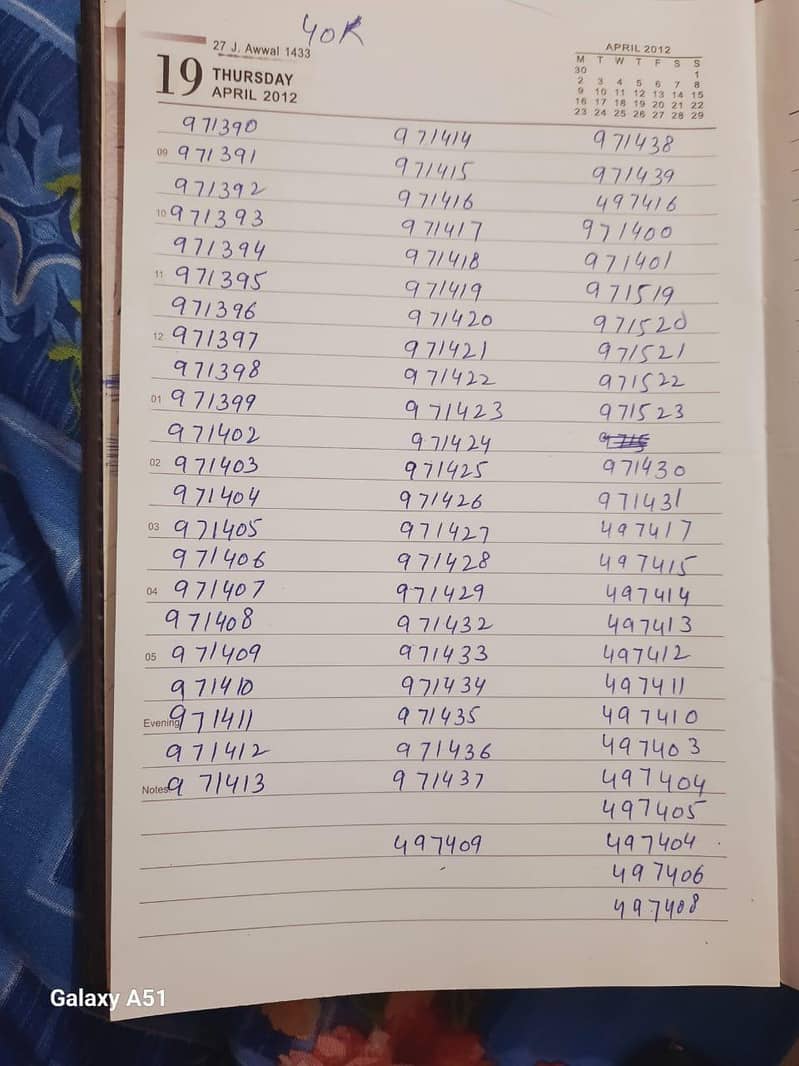 40K
27 J. Awwal 1433
19 THURSDAY
APRIL 2012
APRIL 2012
M T W T F S S
30 1
2 3 4 5 6 7 8
9 10 11 12 13 14 15
16 17 18 19 20 21 22
23 24 25 26 27 28 29
971390 971414 971438
09 971391 971415 971439
971392 971416 497416
10 971393 971417 971400
971394 971418 971401
11 971395 971419 971519
971396 971420 971520
12 971397 971421 971521
971398 971422 971522
01 971399 971423 971523
971402 971424 9715
02 971403 971425 971430
971404 971426 971431
03 971405 971427 497417
971406 971428 497415
04 971407 971429 497414
971408 971432 497413
05 971409 971433 497412
971410 971434 497411
Evening 971411 971435 497410
971412 971436 497403
Notes 971413 971437 497404
497405
497409 497404
497406
497408
Galaxy A51